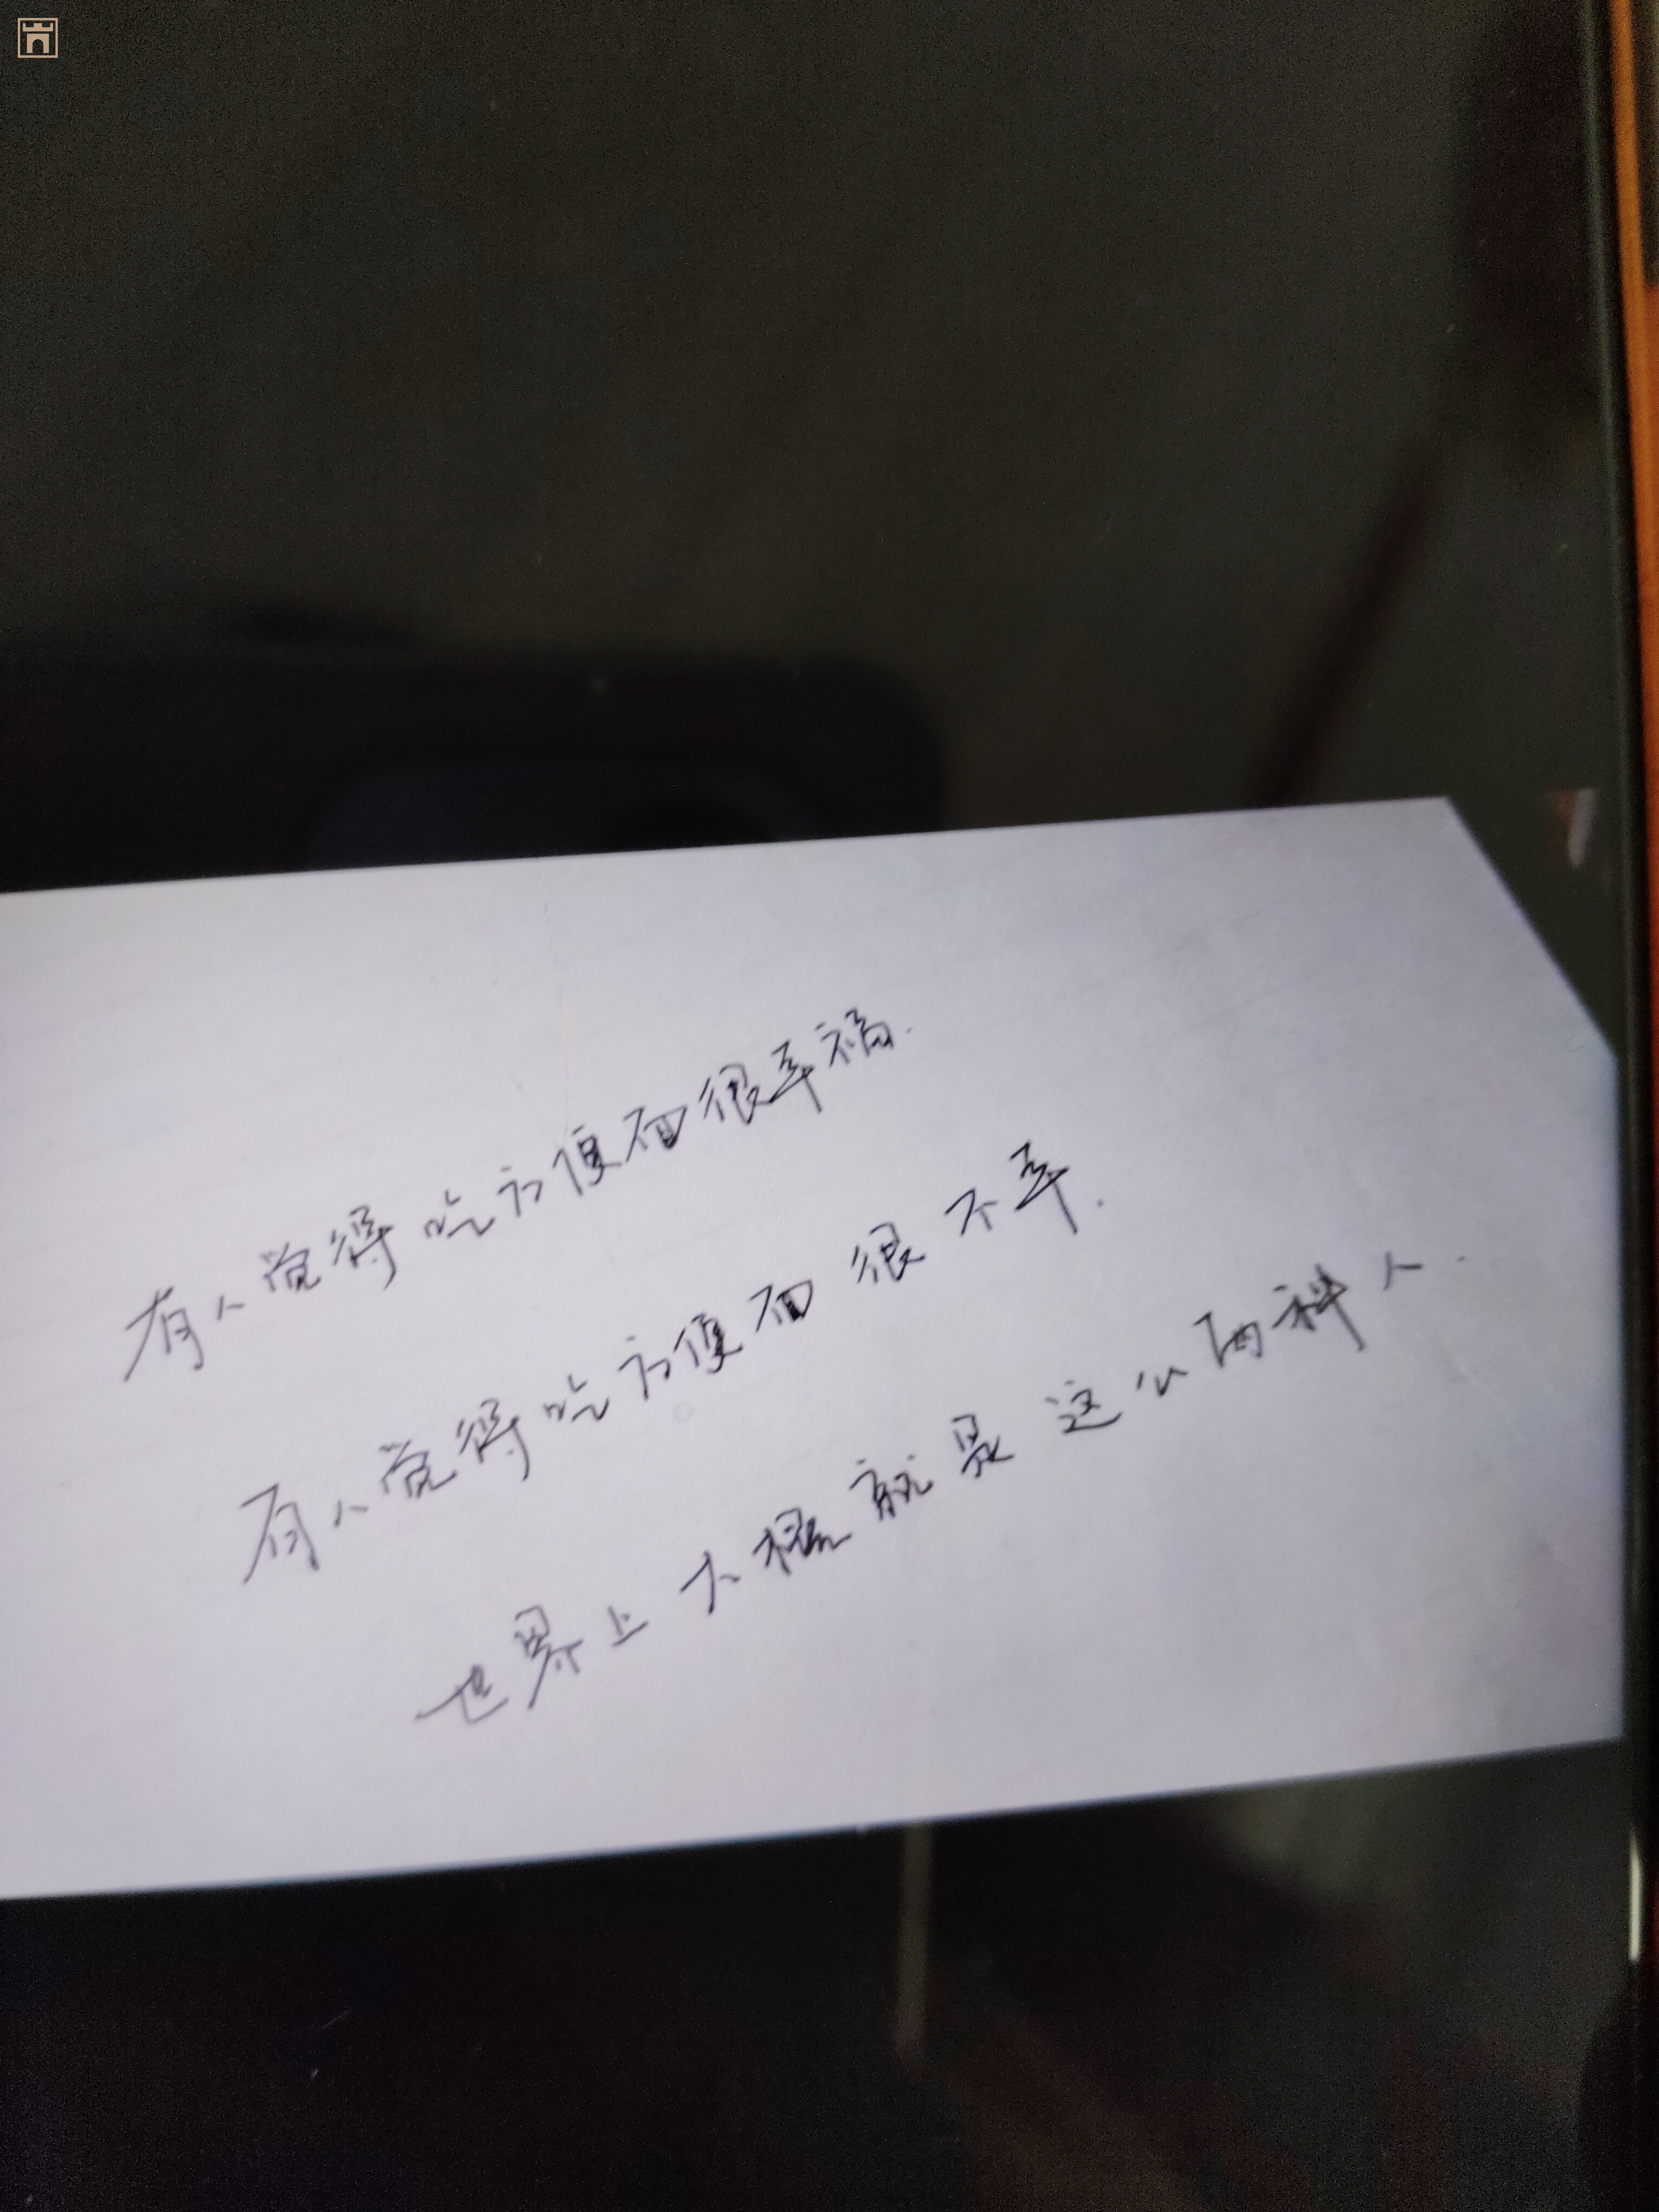 有人觉得吃方便面很幸福.
有人觉得吃方便面很不幸.
世界上大概就是这么两种人.